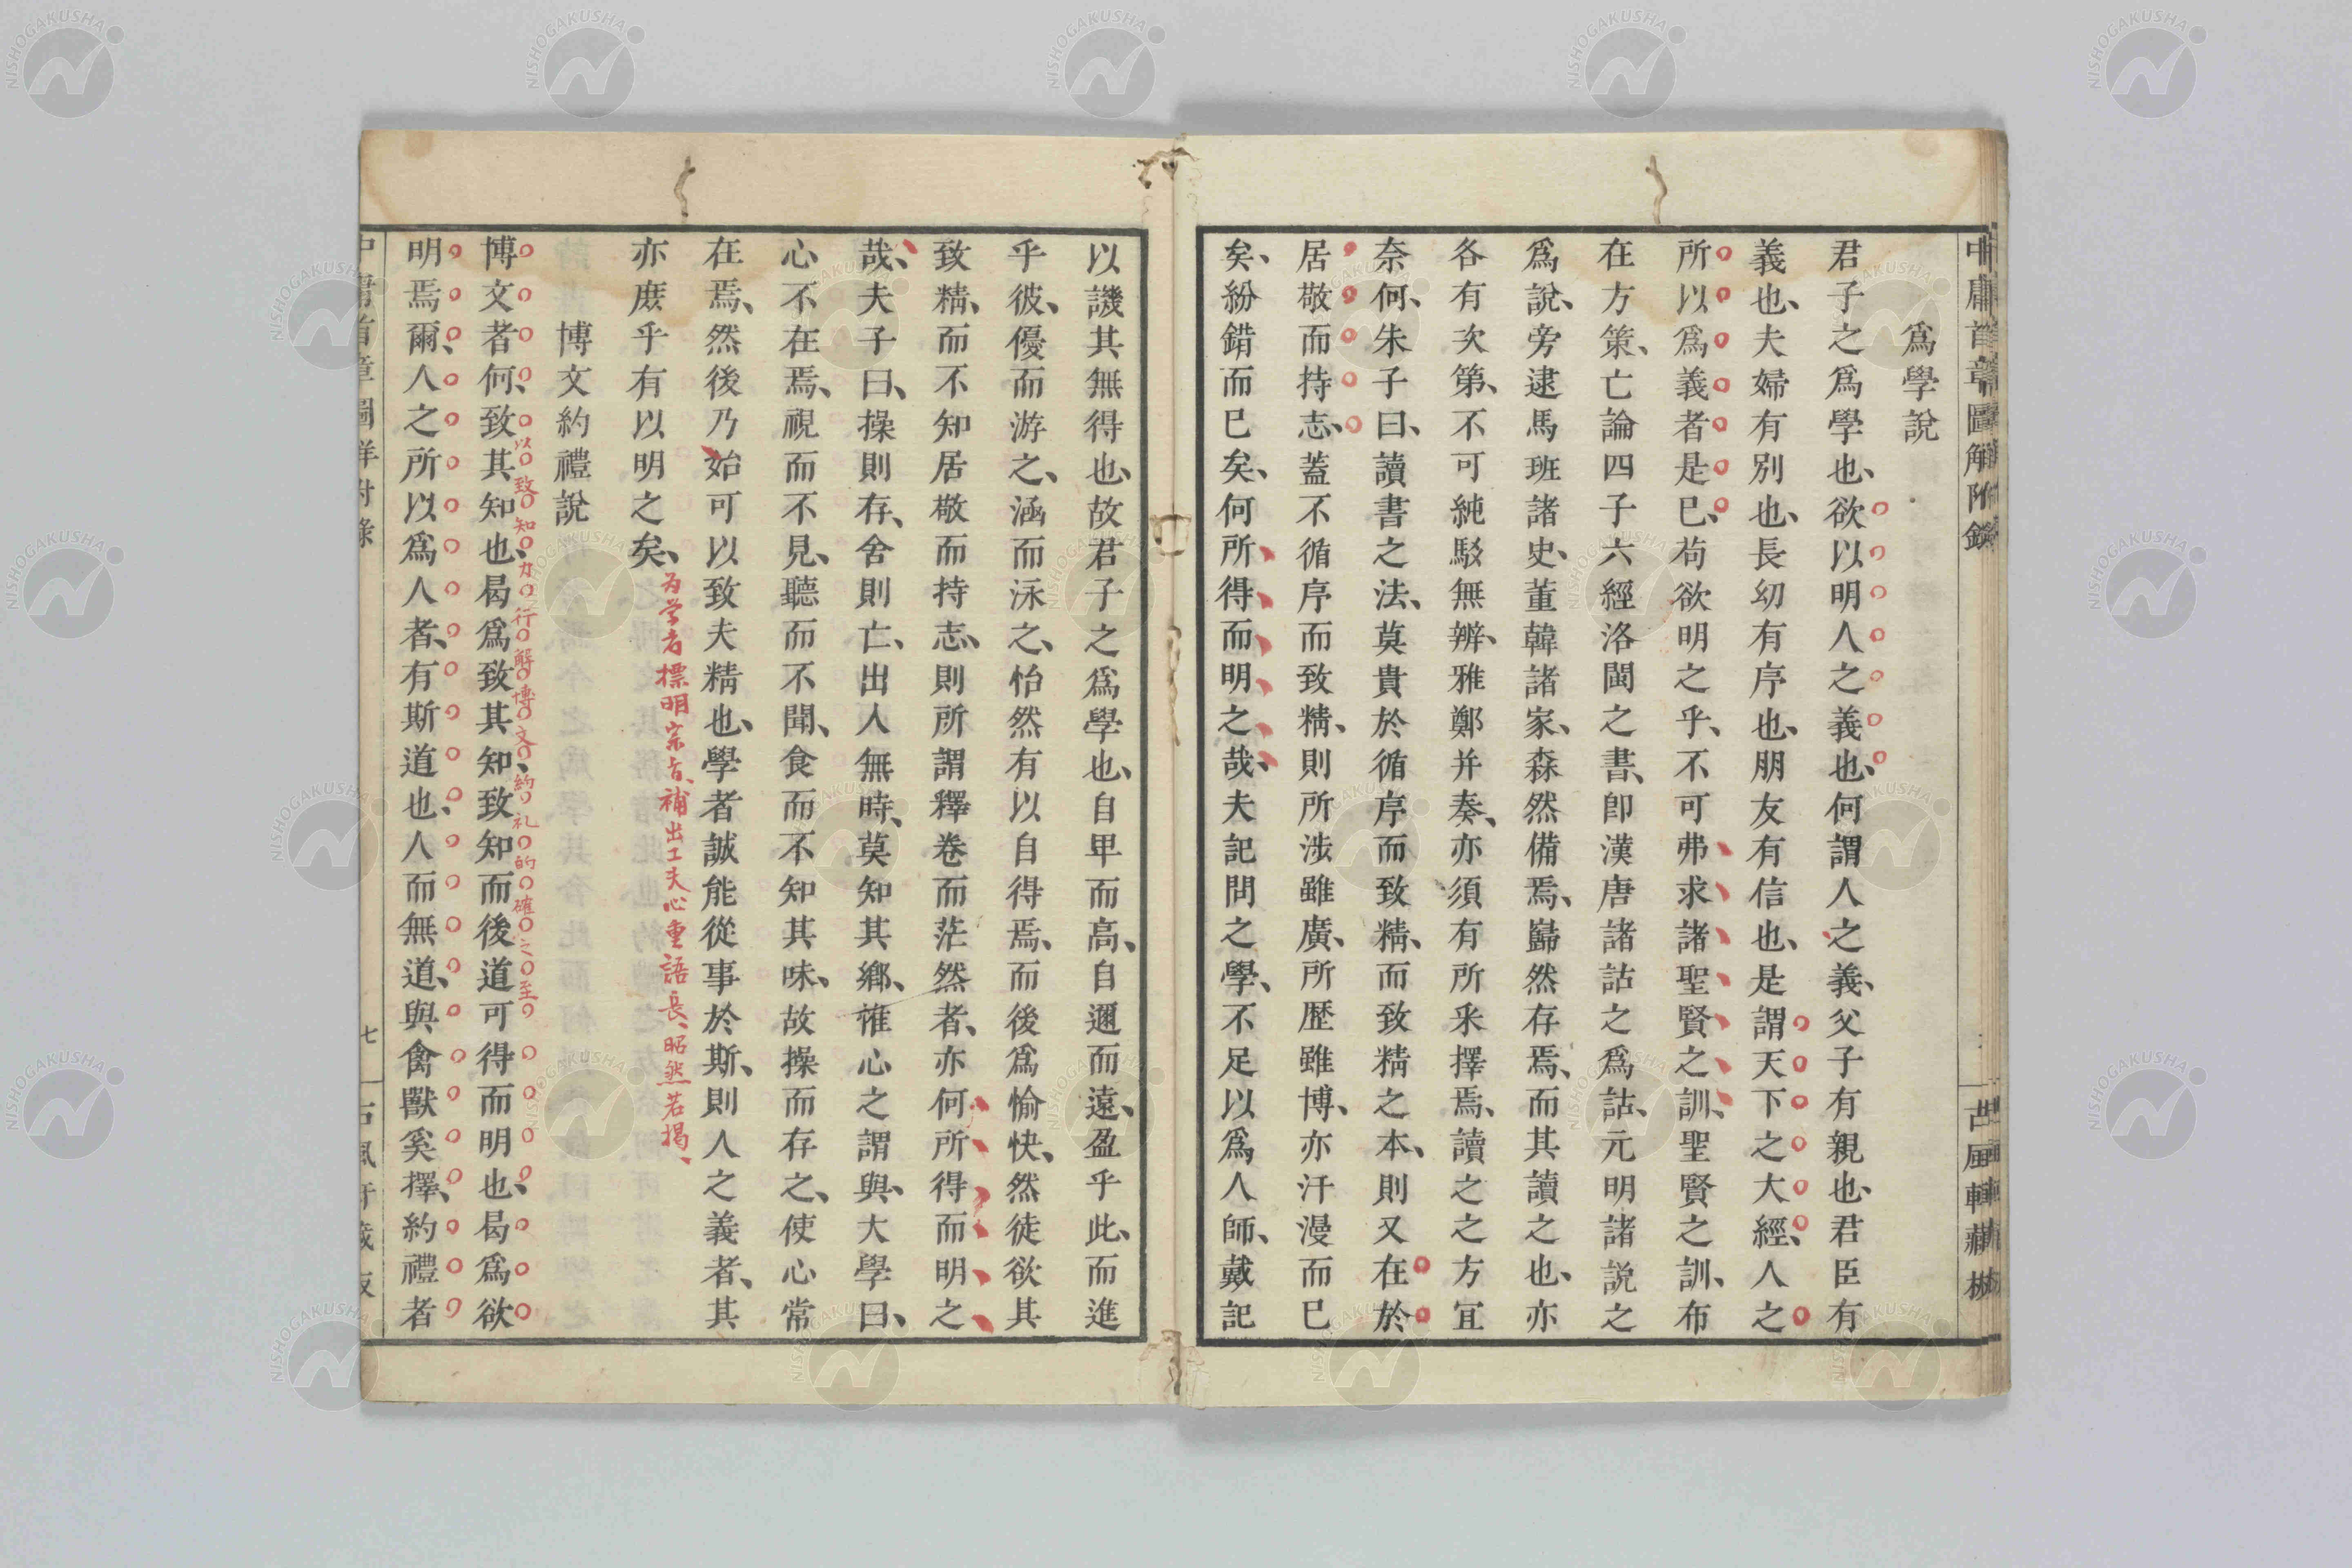 中庸首章圖解附錄
古風軒藏板
爲學說
君子之爲學也、欲以明人之義也、何謂人之義、父子有親也、君臣有
義也、夫婦有別也、長幼有序也、朋友有信也、是謂天下之大經、人之
所以爲義者是已、苟欲明之乎、不可弗求諸聖賢之訓、聖賢之訓、布
在方策、亡論四子六經洛閩之書、卽漢唐諸詁之爲詁、元明諸説之
爲說、旁逮馬班諸史、董韓諸家、森然備焉、巋然存焉、而其讀之也、亦
各有次第、不可純駁無辨、雅鄭并奏、亦須有所采擇焉、讀之之方宜
奈何、朱子曰、讀書之法、莫貴於循序而致精、而致精之本、則又在於
居敬而持志、蓋不循序而致精、則所涉雖廣、所歴雖博、亦汗漫而已
矣、紛錯而已矣、何所得而明之哉、夫記問之學、不足以爲人師、戴記
以譏其無得也、故君子之爲學也、自卑而高、自邇而遠、盈乎此、而進
乎彼、優而游之、涵而泳之、怡然有以自得焉、而後爲愉快、然徒欲其
致精、而不知居敬而持志、則所謂釋卷而茫然者、亦何所得而明之
哉、夫子曰、操則存、舍則亡、出入無時、莫知其鄕、惟心之謂與、大學曰、
心不在焉、視而不見、聽而不聞、食而不知其味、故操而存之、使心常
在焉、然後乃始可以致夫精也、學者誠能從事於斯、則人之義者、其
亦庶乎有以明之矣、
为学者標明宗旨、補出工夫心重語長、昭然若揭、
博文約禮說
以致知力行解博文約礼的確之至
博文者何、致其知也、曷爲致其知、致知而後道可得而明也、曷爲欲
明焉爾、人之所以爲人者、有斯道也、人而無道、與禽獸奚擇、約禮者
七